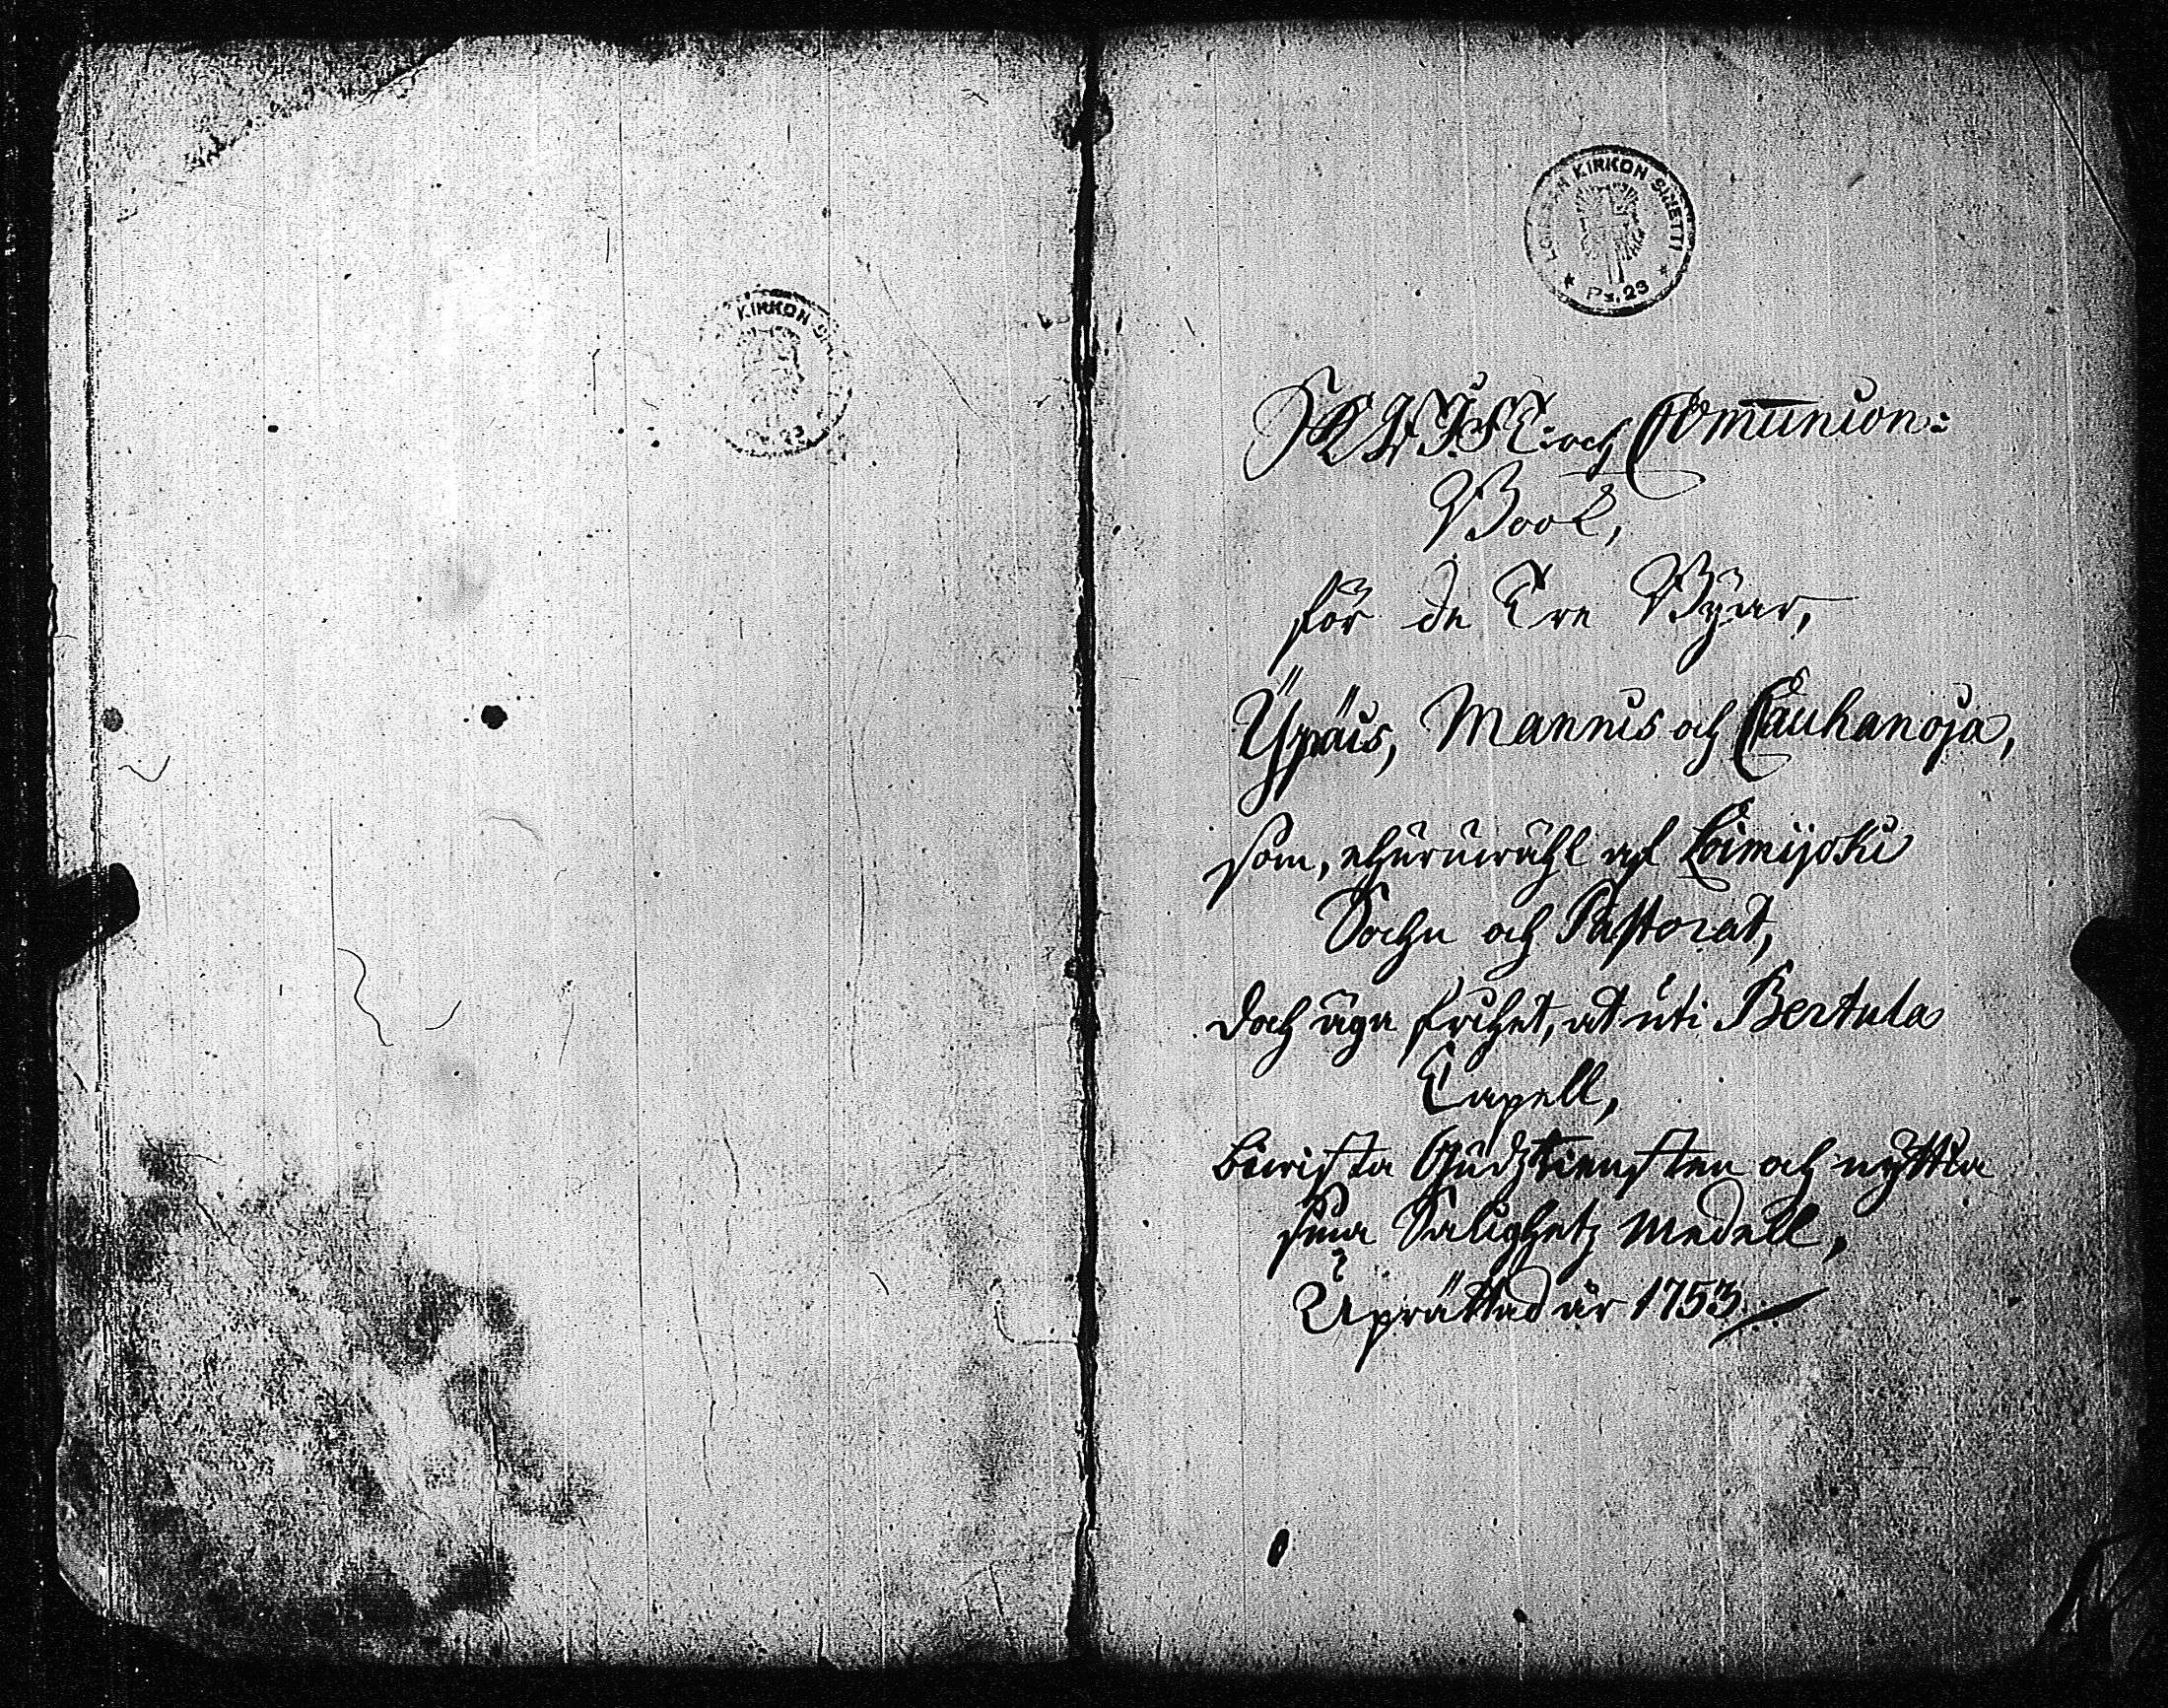 KIRKON
Ps. 23
KIRKON SINETTI
Ps. 23
SKRIFT- och Com̄union:
Book,
för de Tre Byar,
Ÿpäis, Mannis och Cauhanoja,
som, ehuruwähl af Loimijoki
Sochn och Pastorat,
doch äga frihet, at uti Bertula
Capell,
biwista Gudztiensten och nÿttia
sina Salighetz medell,
Uprättad år 1753